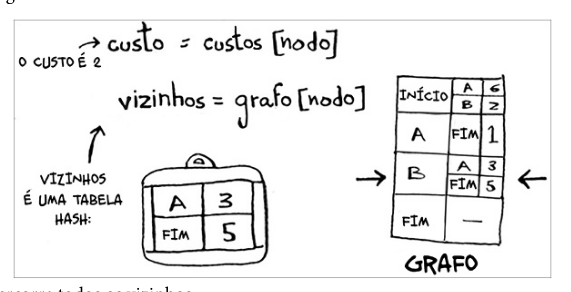 custo = custos [nodo]
O CUSTO É 2
vizinhos = grafo [nodo]
VIZINHOS
É UMA TABELA
HASH:
A 3
FIM 5
INÍCIO A 6
B 2
A FIM 1
B A 3
FIM 5
FIM —
GRAFO